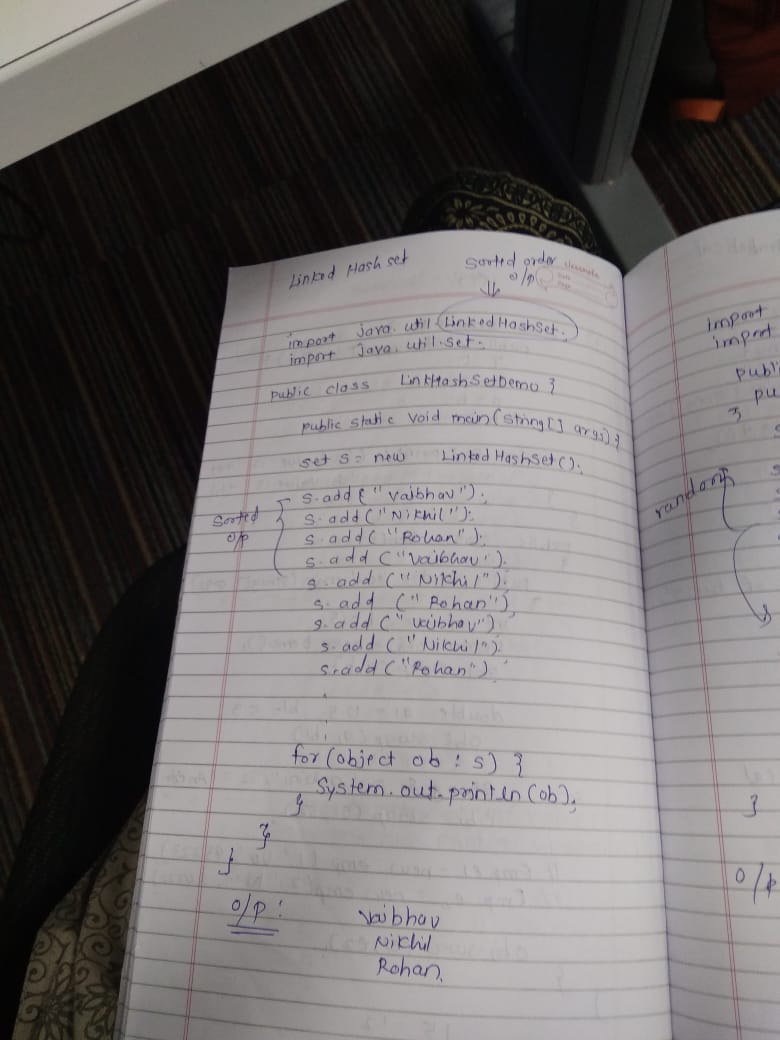 Linked Hash set
sorted order
o/p
classmate
Date
Page
import java.util.LinkedHashSet;
import Java.util.set;
public class LinkHashSetDemo {
public static void main(string[] args) {
set s = new LinkedHashSet();
Sorted
o/p
s.add("Vaibhav");
s.add("Nikhil");
s.add("Rohan");
s.add("Vaibhav");
s.add("Nikhil");
s.add("Rohan");
s.add("Vaibhav");
s.add("Nikhil");
s.add("Rohan")
for(object ob : s) {
System.out.println(ob);
}
}
}
o/p:
Vaibhav
Nikhil
Rohan
import
import
publi
pu
}
random
}
o/p